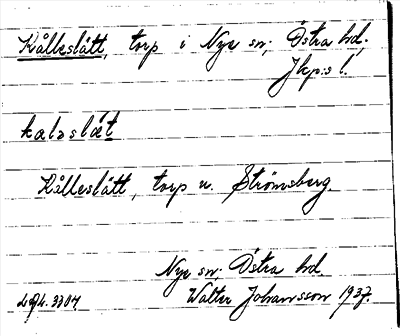 Kålleslätt, torp i Nye sn; Östra hd;
Jkp:s l.
kaləslæt
Kålleslätt, torp u. Strömsberg.
Nye sn; Östra hd.
Walter Johansson 1937.